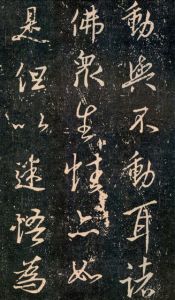 動與不動耳諸
佛眾生性亦如
是但以迷悟為